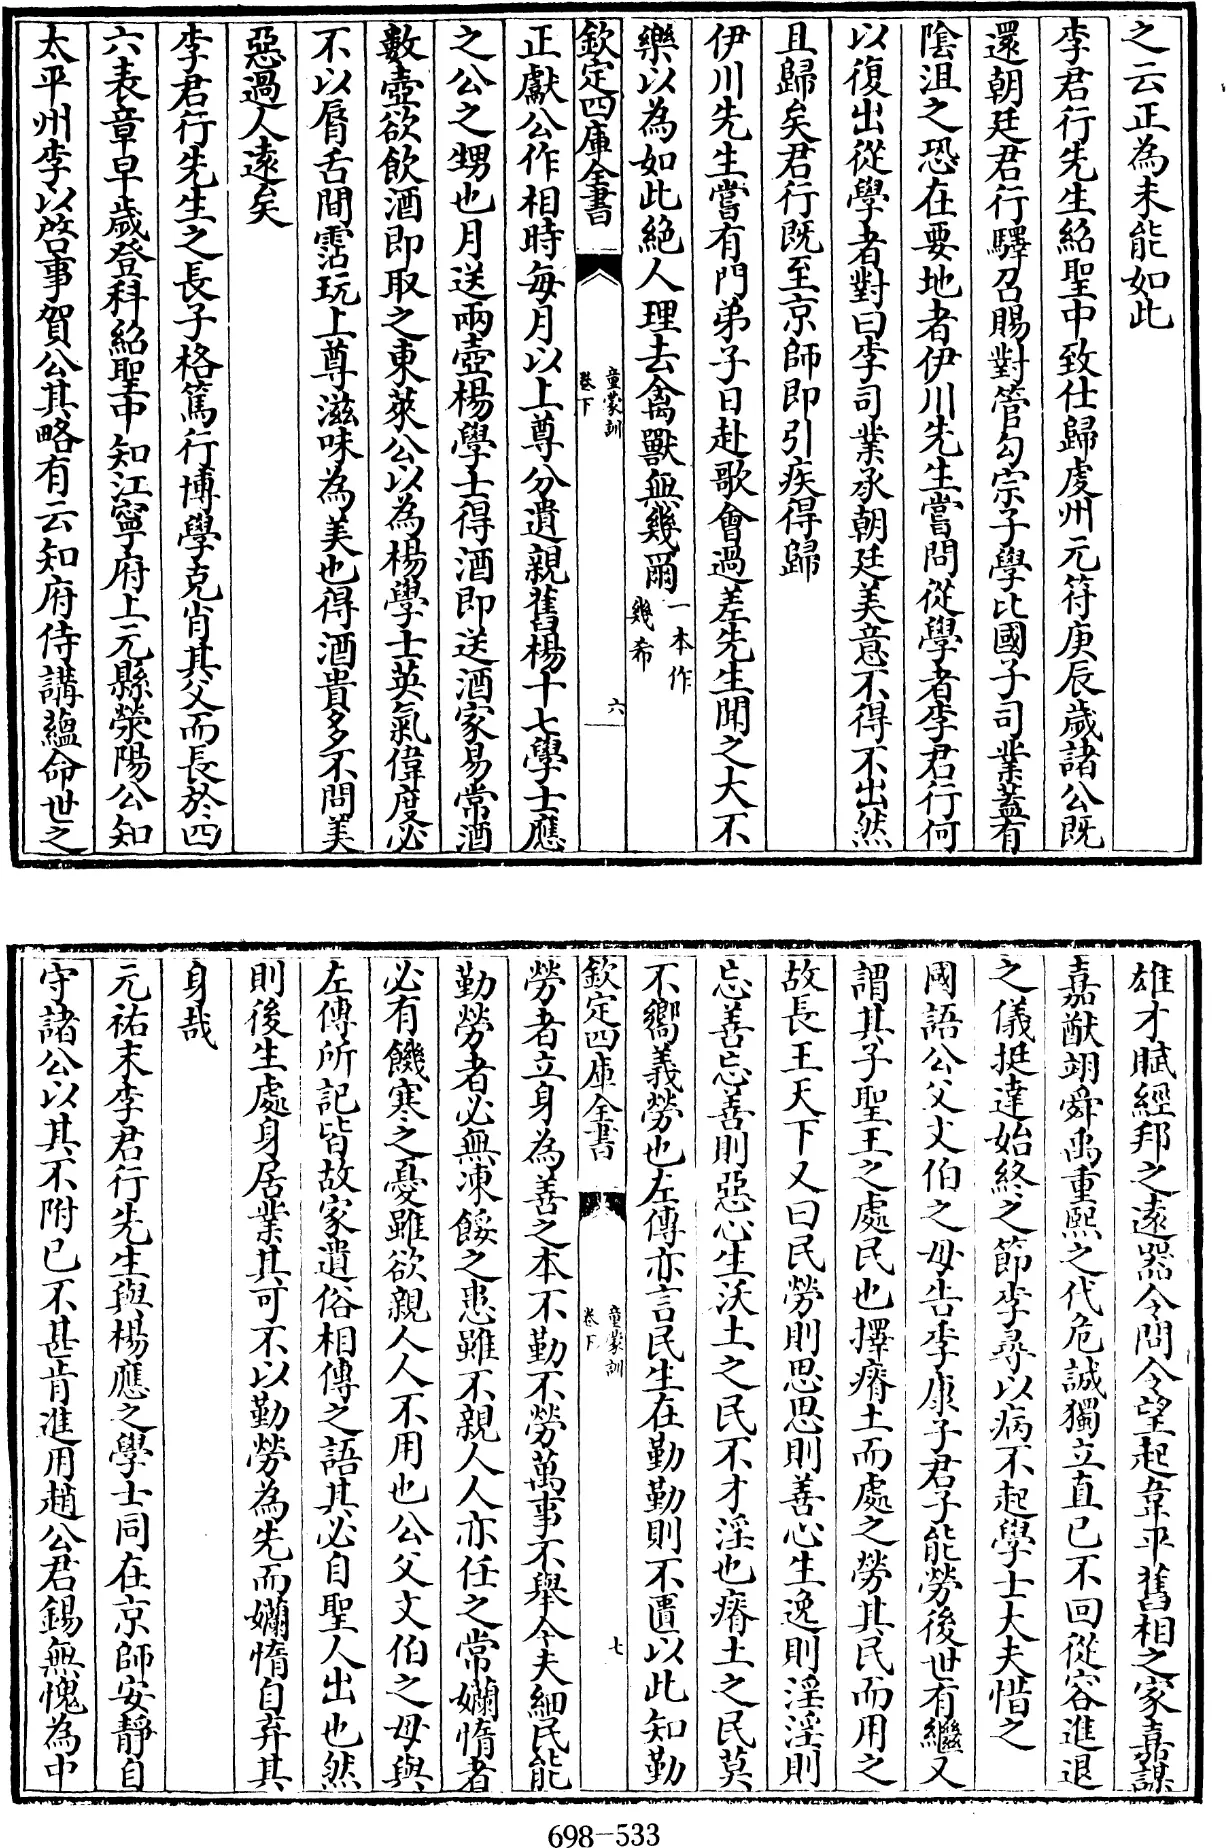 之云正為未能如此
李君行先生紹聖中致仕歸虔州元符庚辰歲諸公既
還朝廷君行驛召賜對管勾宗子學比國子司業蓋有
陰沮之恐在要地者伊川先生嘗問從學者李君行何
以復出從學者對曰李司業承朝廷美意不得不出然
且歸矣君行既至京師即引疾得歸
伊川先生嘗有門弟子日赴歌會過差先生聞之大不
樂以為如此絶人理去禽獸無幾爾一本作幾希
欽定四庫全書
童蒙訓
卷下
六
正獻公作相時每月以上尊分遺親舊楊十七學士應
之公之甥也月送兩壺楊學士得酒即送酒家易常酒
數壺欲飲酒即取之東萊公以為楊學士英氣偉度必
不以脣舌間霑玩上尊滋味為美也得酒貴多不問美
惡過人遠矣
李君行先生之長子格篤行博學克肖其父而長於四
六表章早歲登科紹聖中知江寧府上元縣滎陽公知
太平州李以啓事賀公其略有云知府侍講蘊命世之
雄才賦經邦之遠器令問令望起韋平舊相之家嘉謀
嘉猷翊舜禹重熙之代危誠獨立直已不回從容進退
之儀挺達始終之節李尋以病不起學士大夫惜之
國語公父文伯之母告季康子君子能勞後世有繼又
謂其子聖王之處民也擇瘠土而處之勞其民而用之
故長王天下又曰民勞則思思則善心生逸則淫淫則
忘善忘善則惡心生沃土之民不才淫也瘠土之民莫
不嚮義勞也左傳亦言民生在勤勤則不匱以此知勤
欽定四庫全書
童蒙訓
卷下
七
勞者立身為善之本不勤不勞萬事不舉今夫細民能
勤勞者必無凍餒之患雖不親人人亦任之常嬾惰者
必有饑寒之憂雖欲親人人不用也公父文伯之母與
左傳所記皆故家遺俗相傳之語其必自聖人出也然
則後生處身居業其可不以勤勞為先而嬾惰自弃其
身哉
元祐末李君行先生與楊應之學士同在京師安靜自
守諸公以其不附已不甚肯進用趙公君錫無愧為中
698-533